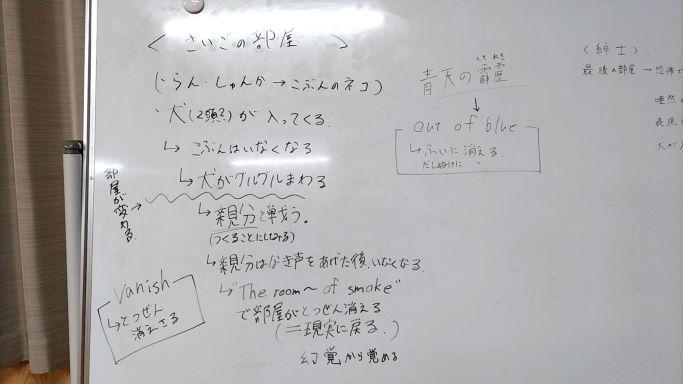 < さいごの部屋 >
(・らん・しゅんか→こぶんのネコ)
・犬(2頭?)が入ってくる
↳ こぶんはいなくなる
↳ 犬がグルグルまわる
部屋が変わる→
↳ 親分と戦う。
(つくることにしてみる)
↳ 親分はなき声をあげた後、いなくなる
↳ "The room〜of smoke"
で部屋がとつぜん消える
(=現実に戻る。)
幻覚から覚める
vanish
↳ とつぜん
消えさる
青天の霹靂
へきれき
↓
out of blue
↳ ふいに消える
だしぬけに 〃
〈紳士〉
最後の部屋→恐怖
唖然
表現
犬が